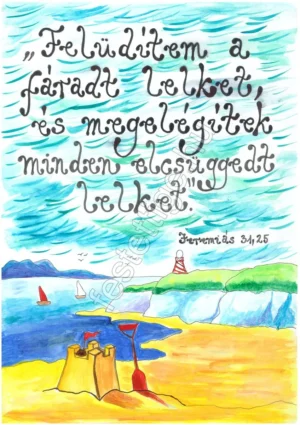 „Felüdítem a
fáradt lelket,
és megelégítek
minden elcsüggedt
lelket".
Jeremiás 31,25